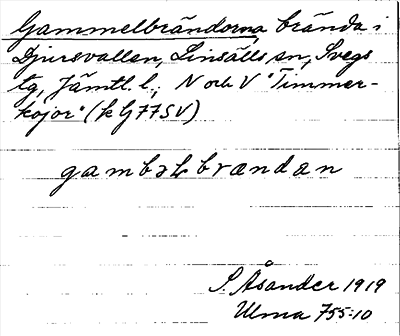 Gammelbrändorna, brända i
Djursvallen, Linsälls sn, Svegs
tg, Jämtl. l., N och V "Timmer-
kojor" (k G77SV)
gambəLbrændan
S. Åsander 1919
Ulma 755:10